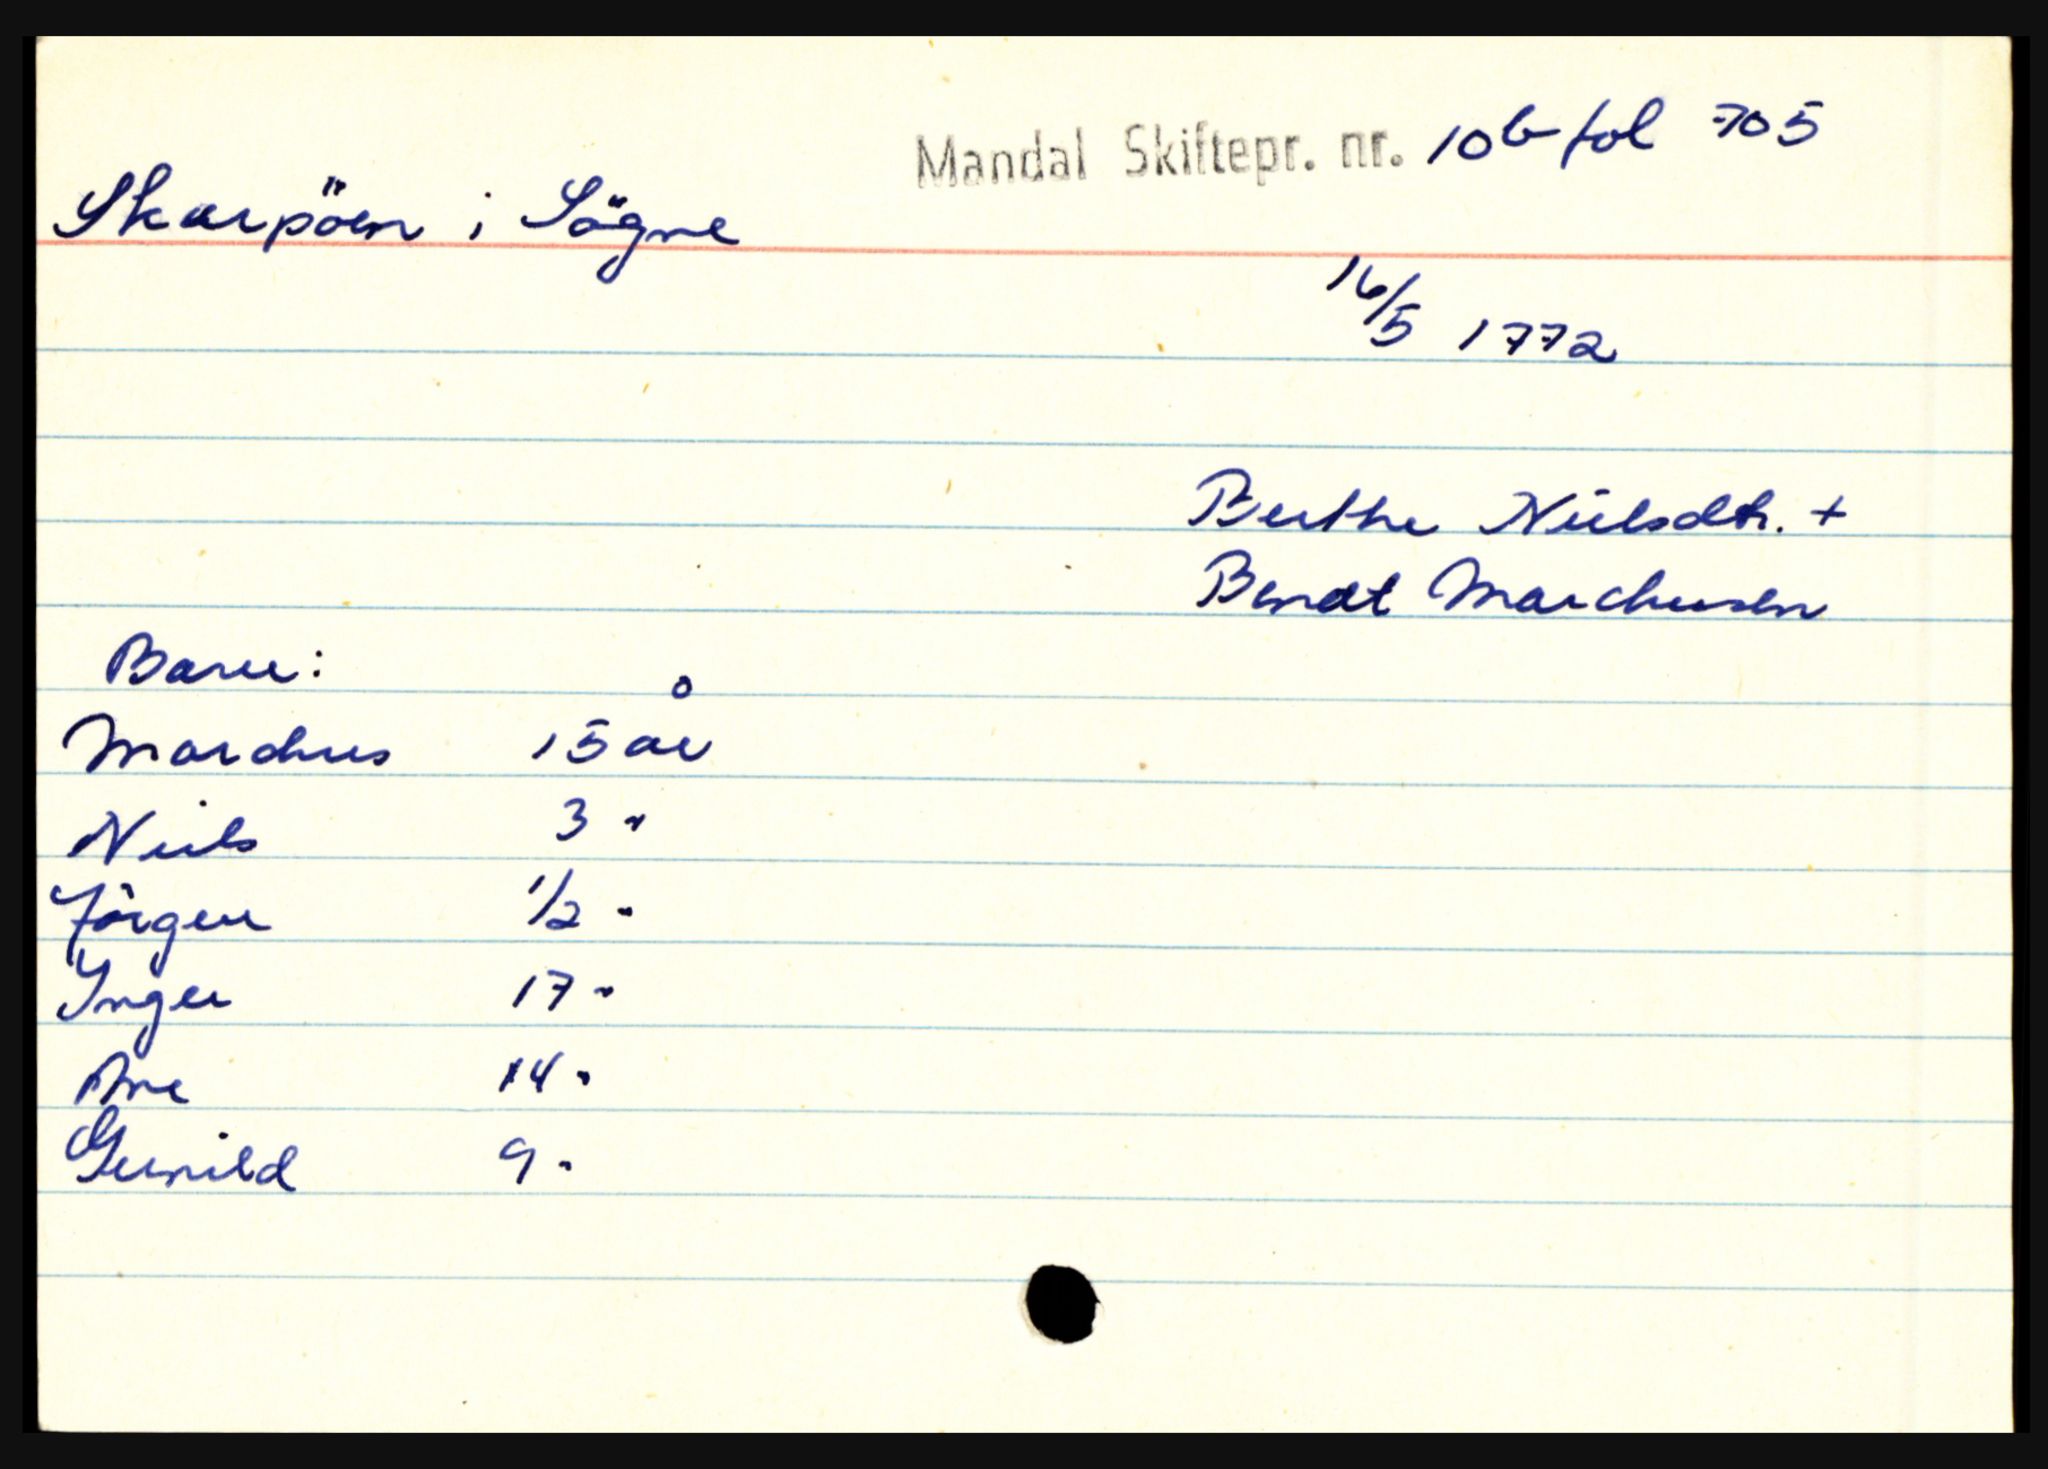 Mandal Skiftepr. nr. 10b fol 705
Skarpöen i Sögne
16/5 1772
Berthe Nielsdtr. +
Berndt Marchusen
Barn:
Marchus 15 år
Niels 3 "
Jörgen 1/2 "
Inger 17 "
Ane 14 "
Gunild 9 "